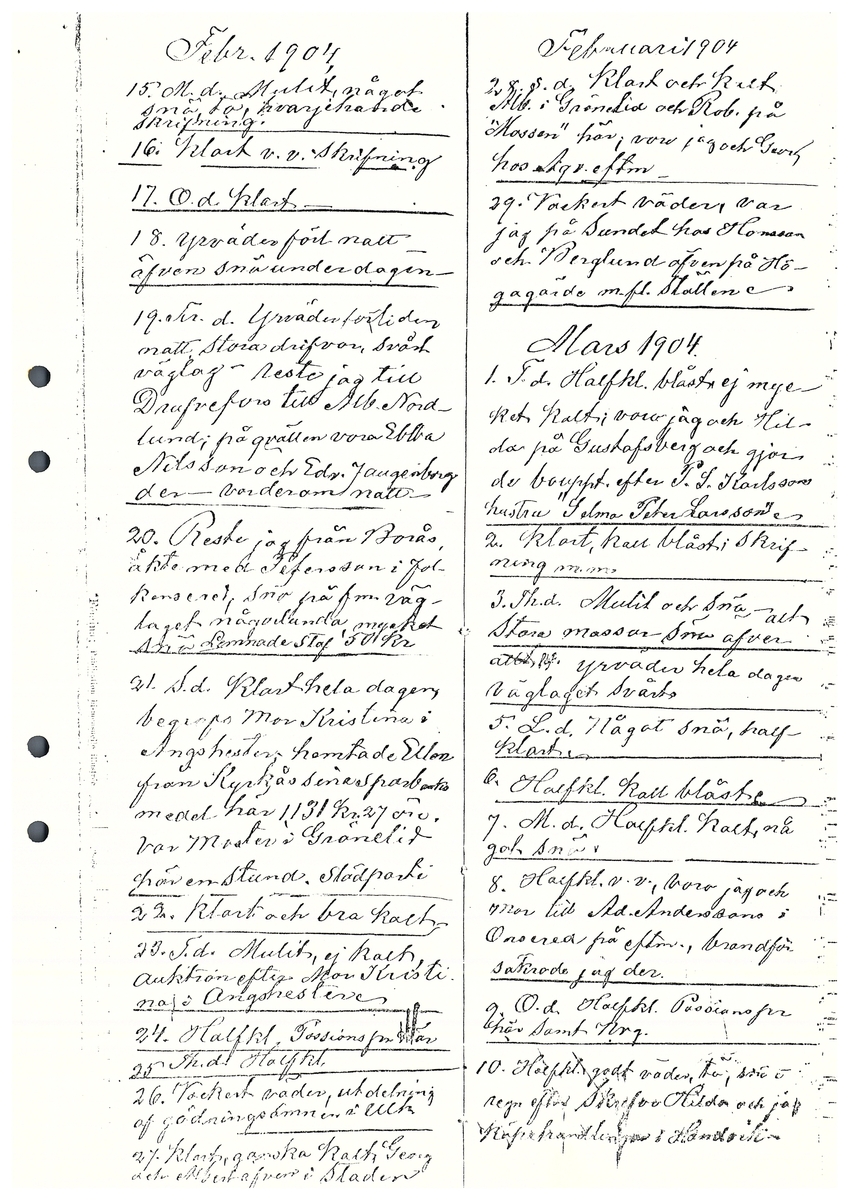 Febr. 1904
15. M.d. Mulit, något
snö tö, hvarjehanda
skrifning.
16. Klart v.v. skrifning
17. O.d. Klart
18. Yrväder förl. natt
äfven snö under dagen
19. Fr. d. Yrväder förliden
natt, stora drifvor, svårt
väglag – reste jag till
Drufvefors till Alb. Nord-
lund, på qvällen voro Ebba
Nilsson och Edv.
der – var der om natt
20. Reste jag från Borås,
åkte med Petersson i Fol-
kenered, snö på fm. väg-
laget någorlunda mycket
snö Lemnade Stof 50 kr
21. S.d. Klart hela dagen,
begrofs Mor Kristina i
Ängshester, hemtade Ellen
från Kyrkås sena sparbanks
medel här 1131 Kr. 27 öre.
var Moster i Grönelid
här en stund. Stödparti
22. Klart och bra kallt
23. T.d. Mulit, ej kallt,
auktion efter Mor Kristi-
na i Ängshester
24. Halfkl. Possionspr här
25 Th.d. Halfkl.
26. Vackert väder, utdelning
af gödningsämnen i Ulr.
27. Klart, ganska kallt, Georg
och Albert äfven i Staden
Februari 1904
28. S.d. Klart och kalt
Alb. i Grönelid och Rob. på
"Mossen" här, voro jag och Georg
hos eftm
29. Vackert väder, var
jag på Sundet hos Hansson
och Berglund äfven på Hö-
gagärde m.fl. ställen
Mars 1904
1. T.d. Halfkl. blåst, ej myc-
ket kalt, voro jag och Hil-
da på Gustafsberg och gjor-
de bouppt. efter P. S. Karlssons
hustru "Selma Peter Larsson"
2. Klart, kall blåst, skrif-
ning m.m.
3. Th.d. Mulit och snö – att
stora massor snö äfven
yrväder hela dagen
väglaget svårt
5. L.d. Något snö, half-
klart
6. Halfkl. kall blåst
7. M.d. Halfkl. kalt, nå
got snö.
8. Halfkl. v.v., voro jag och
Mor till Ad. Anderssons i
Onsered på eftm., brandför
säkrade jag der.
9. O.d. Halfkl. Possionspr
här samt Krg.
10. Halfkl. godt väder, tö, snö o
regn eftm. Skrefvo Hilda och jag
Köpehandlingar i